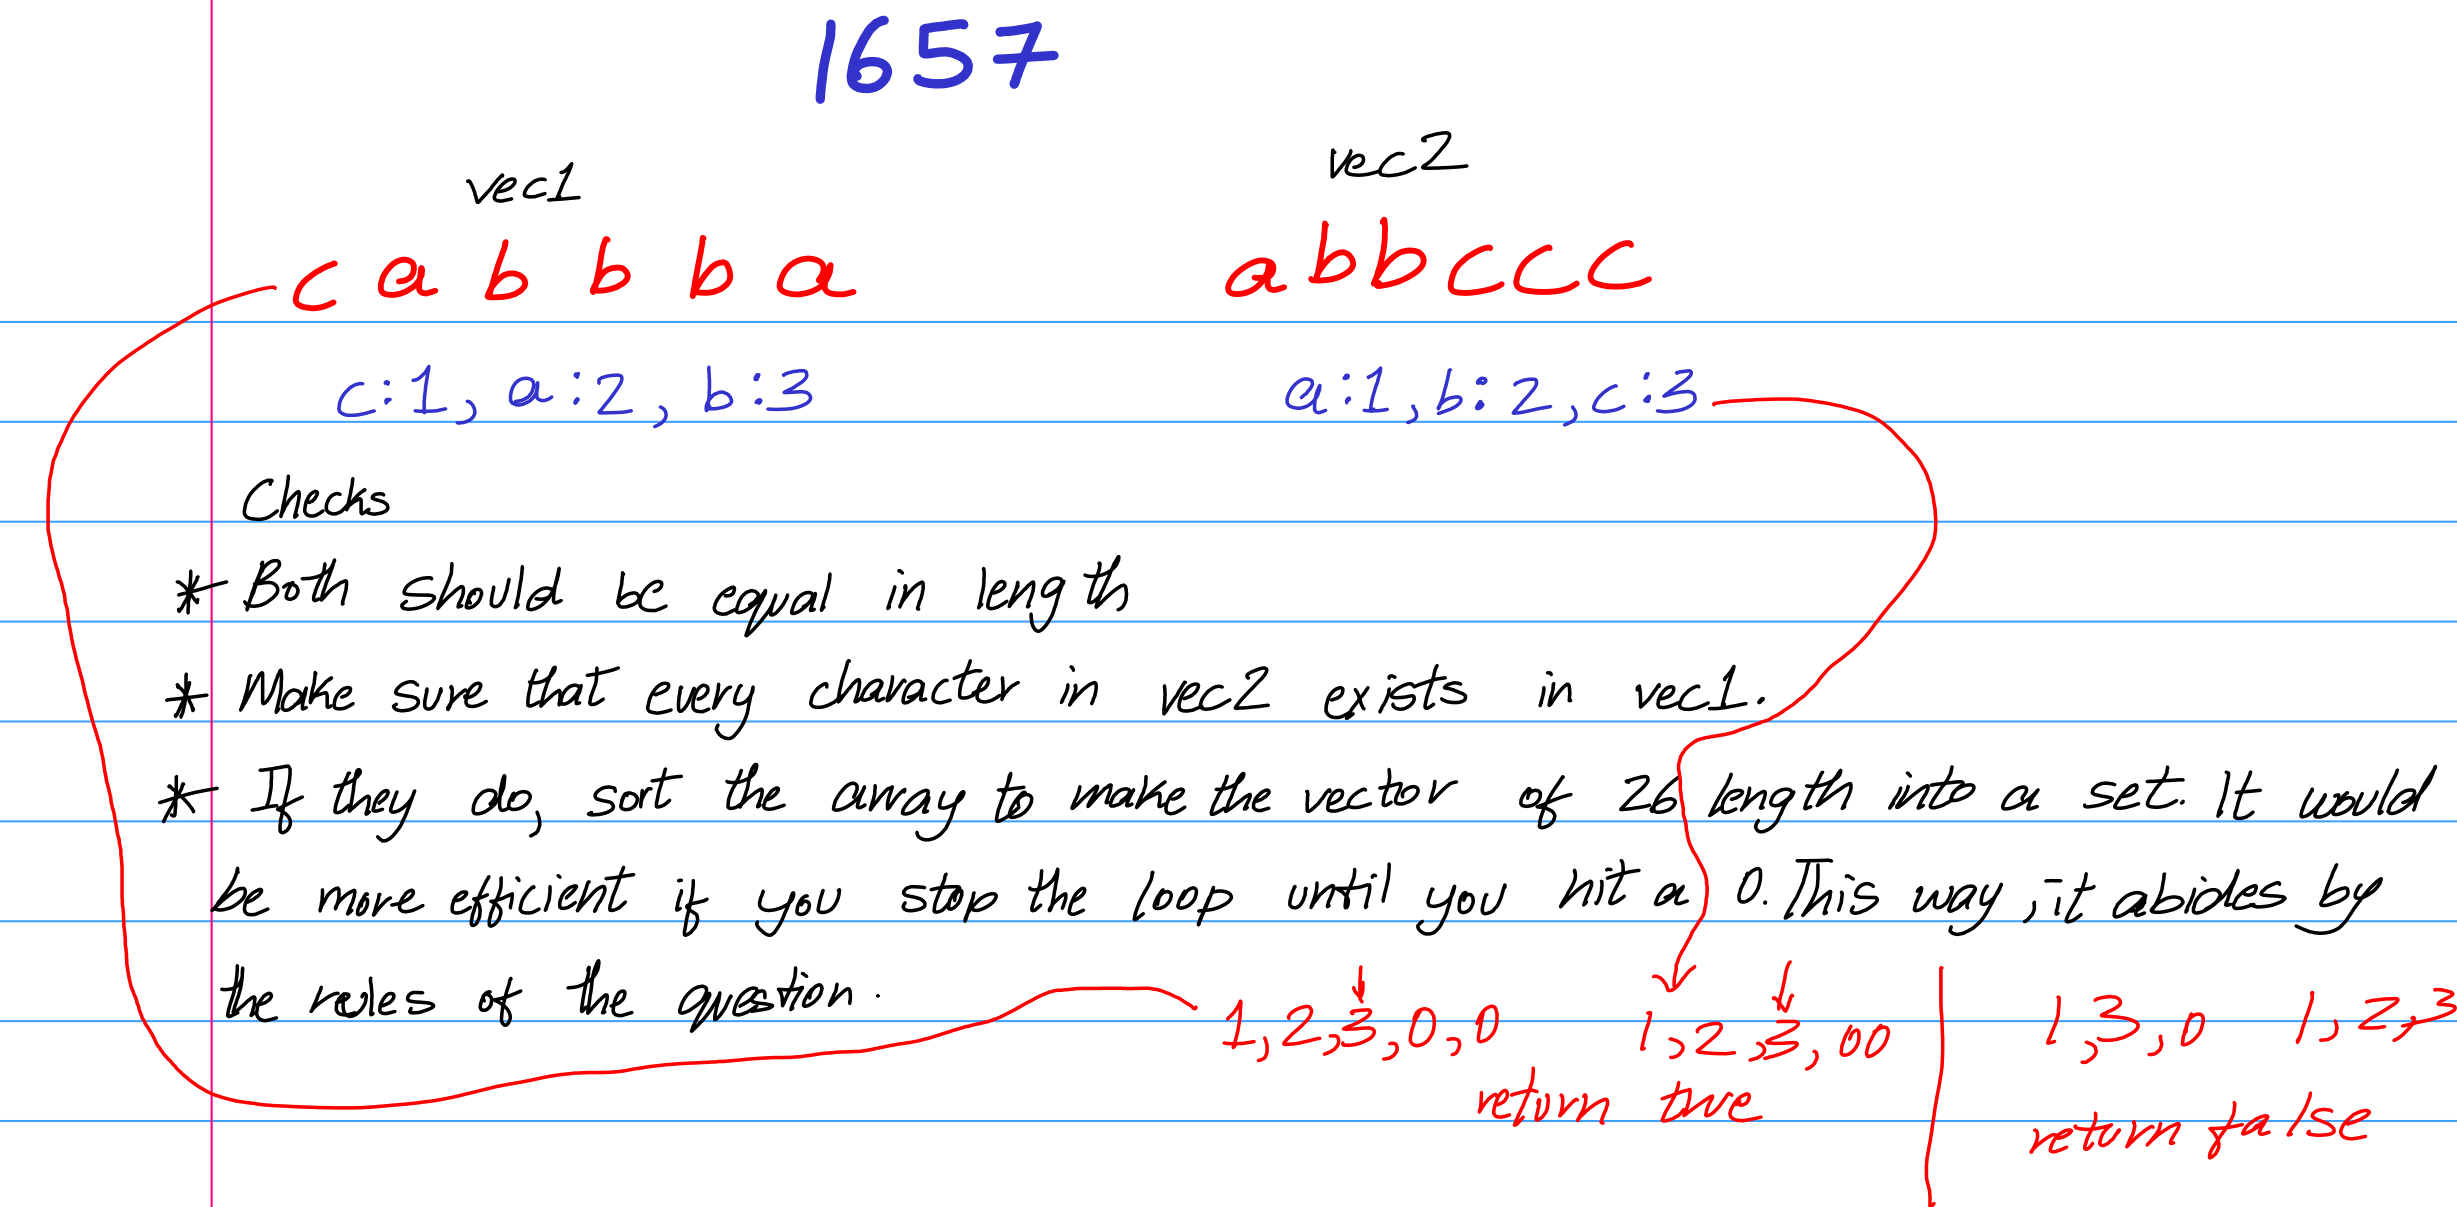 1657
vec1 vec2
c a b b b a abbccc
c:1, a:2, b:3 a:1, b:2, c:3
Checks
* Both should be equal in length
* Make sure that every character in vec2 exists in vec1.
* If they do, sort the array to make the vector of 26 length into a set. It would
be more efficient if you stop the loop until you hit a 0. This way, it abides by
the rules of the question.
1,2,3,0,0 1,2,3,00 1,3,0 1,2,3
return true return false